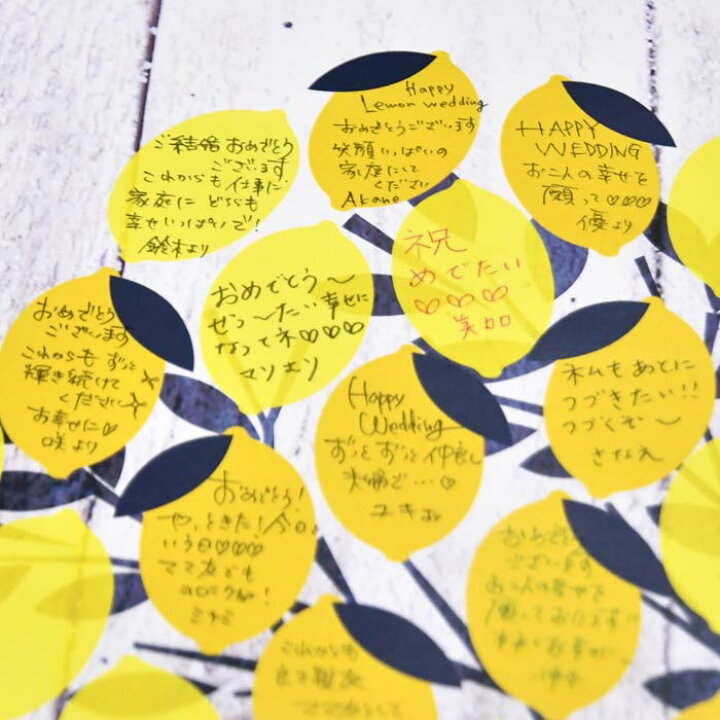 ご結婚おめでとう
ございます
これからも仕事に
家庭に どちらも
幸せいっぱいで!
鈴木より
Happy
Lemon wedding
おめでとうございます
笑顔いっぱいの
家庭にして
ください
Akane
HAPPY
WEDDING
お二人の幸せを
願って♡♡♡
優より
おめでとう〜
ぜっ〜たい幸せに
なってネ♡♡♡
マリエり
祝
めでたい
♡♡♡
美
おめでとう
ございます
これからも ずっと
輝き続けて
ください
お幸せに♡
咲より
Happy
Wedding
ずっと ずっと仲良し
夫婦で…♡
ユキより
私もあとに
つづきたい!!
つづくぞ〜
さなえ
おめでとう!
やっときた!今日と
いう日♡♡♡
ママ友でも
ヨロシクね!
ミナミ
おめでとう
ございます
お二人の幸せを
願っております!!
これからも
良き